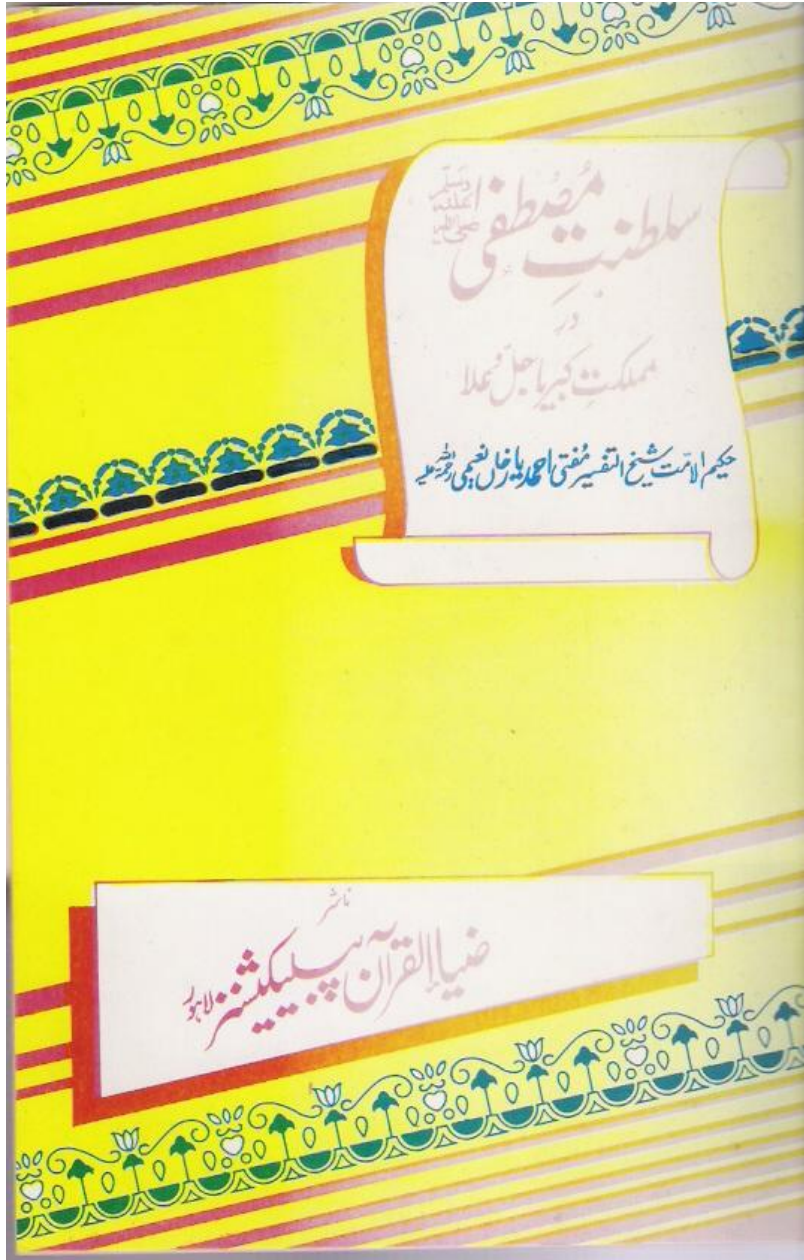 سلطنتِ مُصطفٰی صلی اللہ علیہ وسلم
در
مملکتِ کبریا جلّ و علا
حکیم الامّت شیخ التفسیر مُفتی احمد یار خاں نعیمی رحمۃ اللہ علیہ
ناشر
ضیاء القرآن پبلیکیشنز لاہور